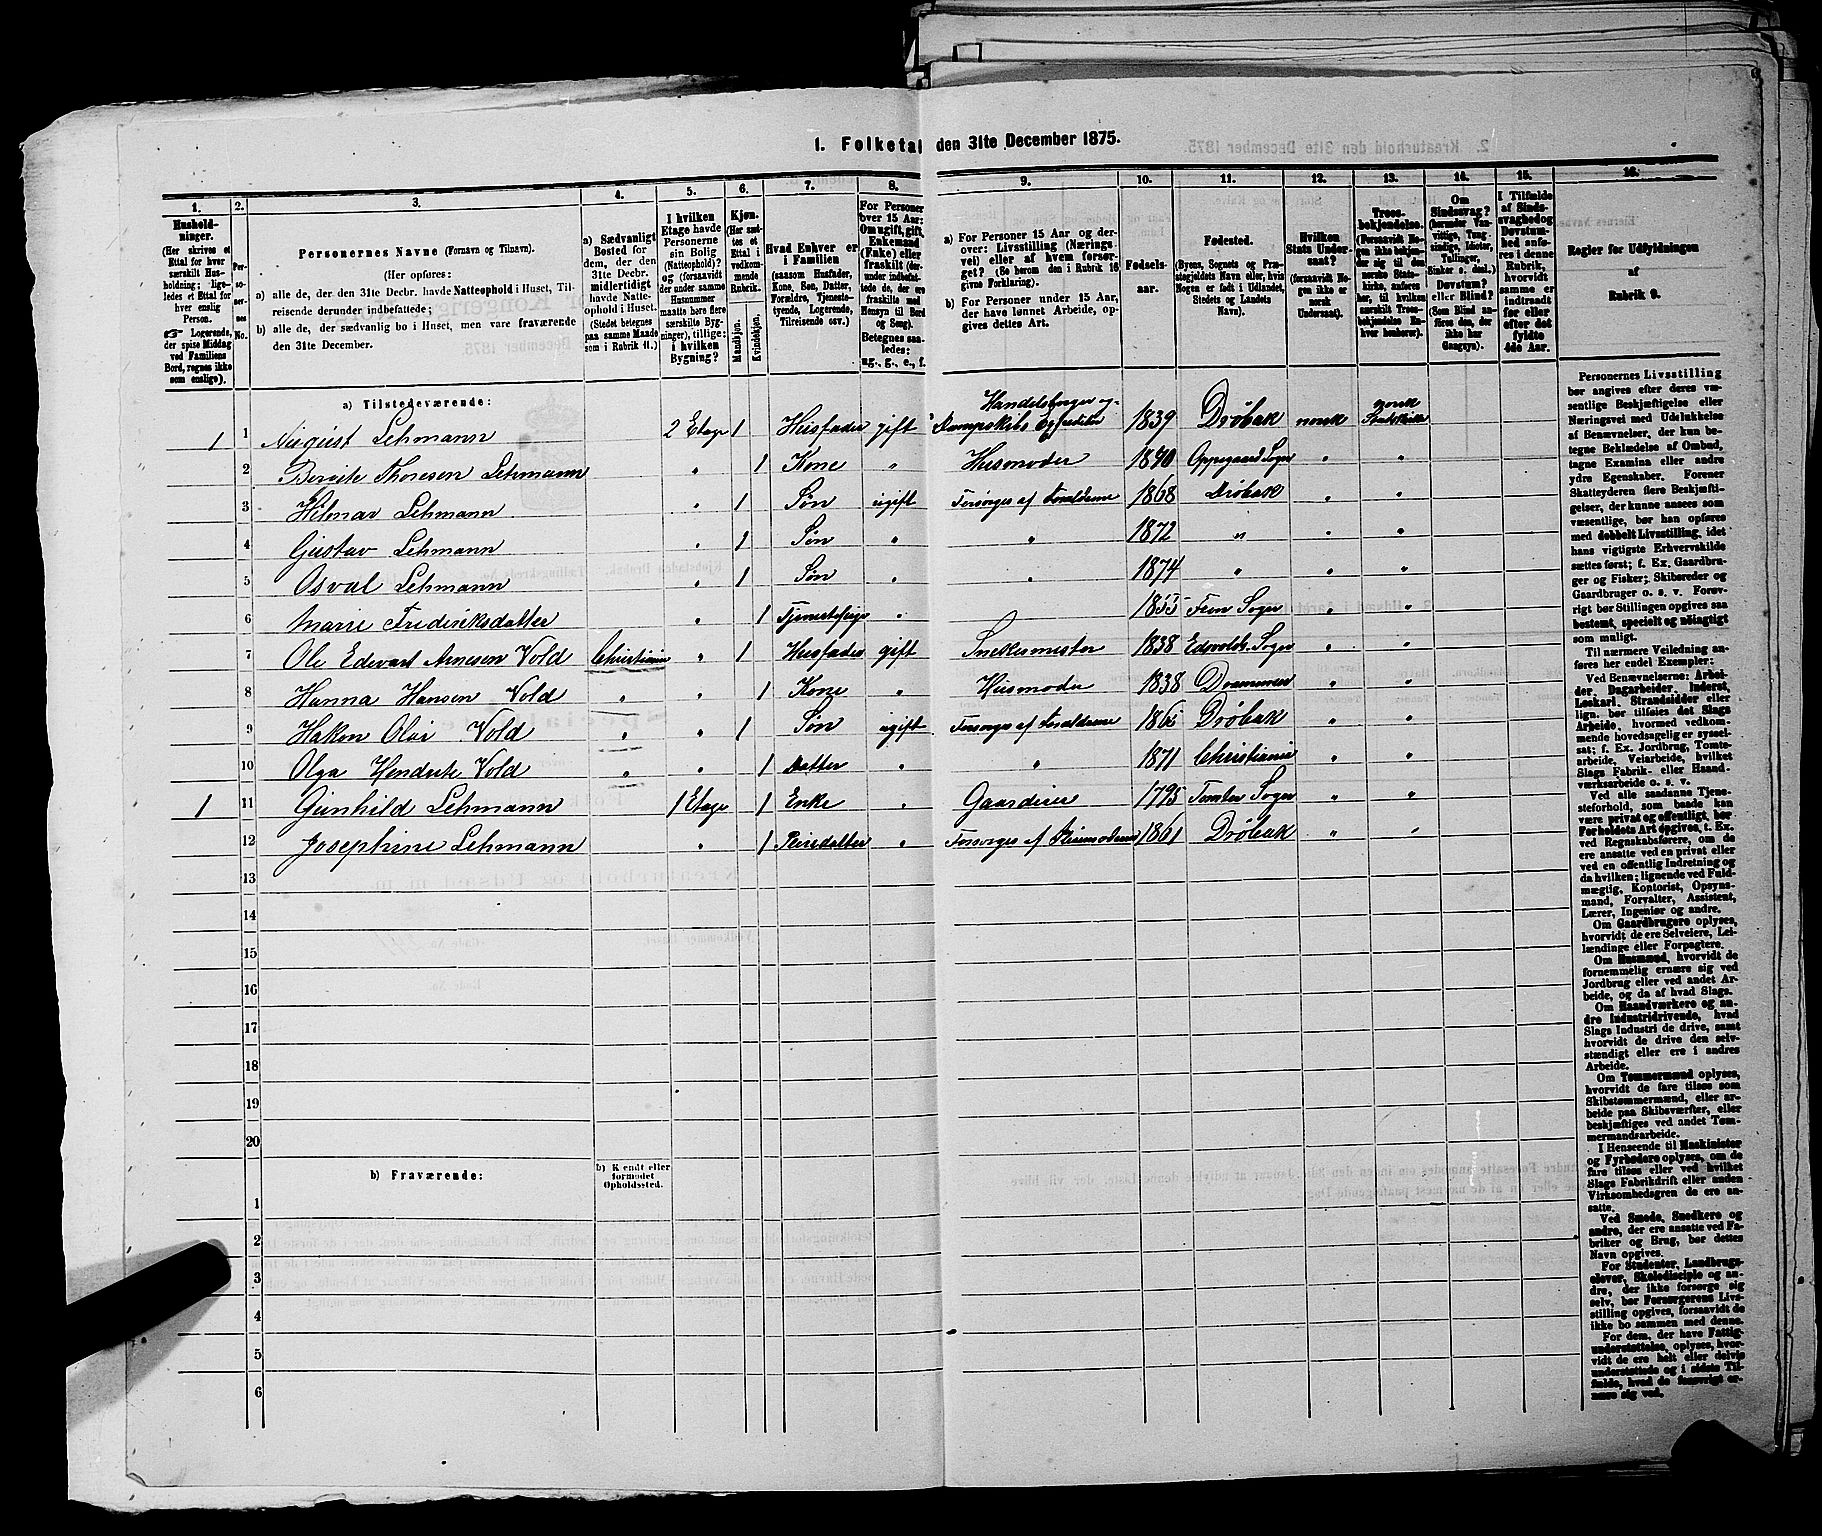 1. Folketal den 31te December 1875.
1. 2. 3. 4. 5. 6. 7. 8. 9. 10. 11. 12. 13. 14. 15. 16.
Hushold-
ninger.
(Her skrives et
Ettal for hver
særskilt Hus-
holdning; lige-
ledes et Ettal for
hver enslig
Person.
Logerende,
der spise Middag
ved Familiens
Bord, regnes ikke
som enslige).
Per-
so-
ner-
nes
No.
Personernes Navne (Fornavn og Tilnavn).
(Her opføres:
a) alle de, der den 31te Decbr. havde Natteophold i Huset, Til-
reisende derunder indbefattede;
b) alle de, der sædvanlig bo i Huset, men vare fraværende
den 31te December.
a) Sædvanligt
Bosted for
dem, der den
31te Decbr.
midlertidigt
havde Natte-
ophold i Huset.
(Stedet betegnes
paa samme Maade
som i Rubrik 11.)
I hvilken
Etage havde
Personerne
sin Bolig
(Natteophold)?
og (forsaavidt
der under samme
Husnummer
maatte høre flere
særskilte Byg-
ninger), tillige:
i hvilken
Bygning?
Kjøn.
(Her sæt-
tes et
Ettal i
vedkom-
mende
Rubrik.
Mandkjøn.
Kvindekjøn.
Hvad Enhver er
i Familien
(saasom Husfader,
Kone, Søn, Datter,
Forældre, Tjeneste-
tyende, Logerende,
Tilreisende osv.)
For Personer
over 15 Aar:
Om ugift, gift,
Enkemand
(Enke) eller
fraskilt (der-
under indbefat-
tede de, der ere
fraskilte med
Hensyn til Bord
og Seng).
Betegnes saa-
ledes:
ug., g., e., f.
a) For Personer 15 Aar og der-
over: Livsstilling (Nærings-
vei) eller af hvem forsør-
get? (Se herom den i Rubrik 16
givne Forklaring).
b) For Personer under 15 Aar,
der have lønnet Arbeide, op-
gives dettes Art.
Fødsels-
aar.
Fødested.
(Byens, Sognets og Præ-
stegjeldets Navn eller, hvis
Nogen er født i Udlandet,
Stedets og Landets
Navn).
Hvilken
Stats Under-
saat?
(forsaavidt No-
gen ikke er
norsk
Undersaat).
Troes-
bekjendelse.
(Forsaavidt No-
gen ikke bekjen-
der sig til den
norske Stats-
kirke, anføres
her, til hvilken
særskilt Troes-
bekjendelse En-
hver henhører).
Om
Sindssvag?
(herunder Van-
vittige, Tung-
sindige, Idioter,
Tullinger,
Sinker o. desl.)
Døvstum?
eller Blind?
(Som Blind an-
føres den, der
ikke har
Gangsyn).
I Tilfælde
af Sinds-
svaghed og
Døvstum-
hed anfø-
res i denne
Rubrik,
hvorvidt
samme er
indtraadt
før eller
efter det
fyldte
4de Aar.
Regler for Udfyldningen
af
Rubrik 9.
a) Tilstedeværende:
1 1 August Lehmann 2 Etage 1 Husfader gift Handelsborger og Dampskibs Expeditør 1839 Drøbak norsk norsk Statskirke
2 Bergite Thoresen Lehmann " 1 Kone " Husmoder 1840 Oppegaard Sogn " "
3 Hilmar Lehmann " 1 Søn ugift Forsørges af Foraldrene 1868 Drøbak " "
4 Gustav Lehmann " 1 Søn " " 1872 " " "
5 Osval Lehmann " 1 Søn " " 1874 " " "
6 Marie Frideriksdatter " 1 Tjenestepige " 1855 Sogn " "
7 Ole Edevart Arnesen Vold Christiania " 1 Husfader gift Snekkermester 1838 Edsvolds Sogn " "
8 Hanna Hansen Vold " " 1 Kone " Husmoder 1838 Drammen " "
9 Hakon Olai Vold " " 1 Søn ugift Forsørges af Foraldrene Drøbak " "
10 Olga Vold " " 1 Datter " 1871 Christiania " "
1 11 Gunhild Lehmann 1 Etage 1 Enke " Gaardeier 1795 Sogn " "
12 Josephine Lehmann " 1 Pleiedatter " Forsørges af Pleiemoderen 1861 Drøbak " "
13
14
15
16
17
18
19
20
b) Fraværende:
b) Kjendt eller
formodet
Opholdssted.
1
2
3
4
5
6
Personernes Livsstilling
bør angives efter deres væ-
sentlige Beskjæftigelse eller
Næringsvei med Udelukkelse
af Benævnelser, der kun be-
tegne Beklædelse af Ombud,
tagne Examina eller andre
ydre Egenskaber. Forener
Skatteyderen flere Beskjæfti-
gelser, der kunne ansees som
væsentlige, bør han opføres
med dobbelt Livsstilling, idet
hans vigtigste Erhvervskilde
sættes først; f. Ex. Gaardbru-
ger og Fisker; Skibsreder og
Gaardbruger o. s. v. Forøv-
rigt bør Stillingen opgives saa
bestemt, specielt og nøiagtigt
som muligt.
Til nærmere Veiledning an-
føres her endel Exempler:
Ved Benævnelserne: Arbei-
der, Dagarbeider, Inderst,
Løskarl, Strandsidder eller
lign. bør tilføies det Slags
Arbeide, hvormed vedkom-
mende hovedsagelig er syssel-
sat; f. Ex. Jordbrug, Tomte-
arbeide, Veiarbeide, hvilket
Slags Fabrik- eller Haand-
værksarbeide o. s. v.
Ved alle saadanne Tjene-
steforhold, som baade kan
være privat og offentligt, bør
Forholdets Art opgives, t. Ex.
ved Regnskabsførere, om de
ere ansatte ved en privat eller
ved en offentlig Indretning og
da hvilken; lignende ved Fuld-
mægtig, Kontorist, Opsyns-
mand, Forvalter, Assistent,
Lærer, Ingeniør og andre.
Om Gaardbrugere oplyses,
hvorvidt de ere Selveiere, Lei-
lændinge eller Forpagtere.
Om Husmænd, hvorvidt de
fornemmelig ernære sig ved
Jordbrug eller ved andet Ar-
beide, og da af hvad Slags.
Om Haandværkere og an-
dre Industridrivende, hvad
Slags Industri de drive, samt
hvorvidt de drive den selv-
stændigt eller ere i andres
Arbeide.
Om Tømmermænd oplyses,
hvorvidt de fare tilsøs som
Skibstømmermænd, eller ar-
beide paa Skibsværfter, eller
beskjæftiges ved andet Tøm-
mermandsarbeide.
I Henseende til Maskinister
og Fyrbødere oplyses, om de
fare tilsøs eller ved hvilket
Slags Fabrikdrift eller anden
Virksomhedsgren de ere an-
satte.
Ved Smede, Snedkere og
andre, der ere ansatte ved Fa-
briker og Brug, bør dettes
Navn opgives.
For Studenter, Landbrugs-
elever, Skoledisciple og an-
dre, der ikke forsørge sig
selv, bør Forsørgerens Livs-
stilling opgives, forsaavidt de
ikke bo sammen med denne.
For dem, der have Fattig-
understøttelse, oplyses, hvor-
vidt de ere helt eller delvis
understøttede og i sidste Til-
fælde, hvad de forøvrigt er-
nære sig ved.